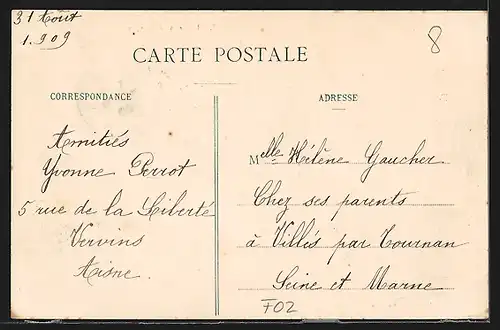 31 Août
1.909
8
CARTE POSTALE
CORRESPONDANCE
ADRESSE
Amitiés
Yvonne Perrot
5 rue de la Liberté
Vervins
Aisne.
Melle Hélène Gaucher
Chez ses parents
à Villés par Tournan
Seine et Marne
F02